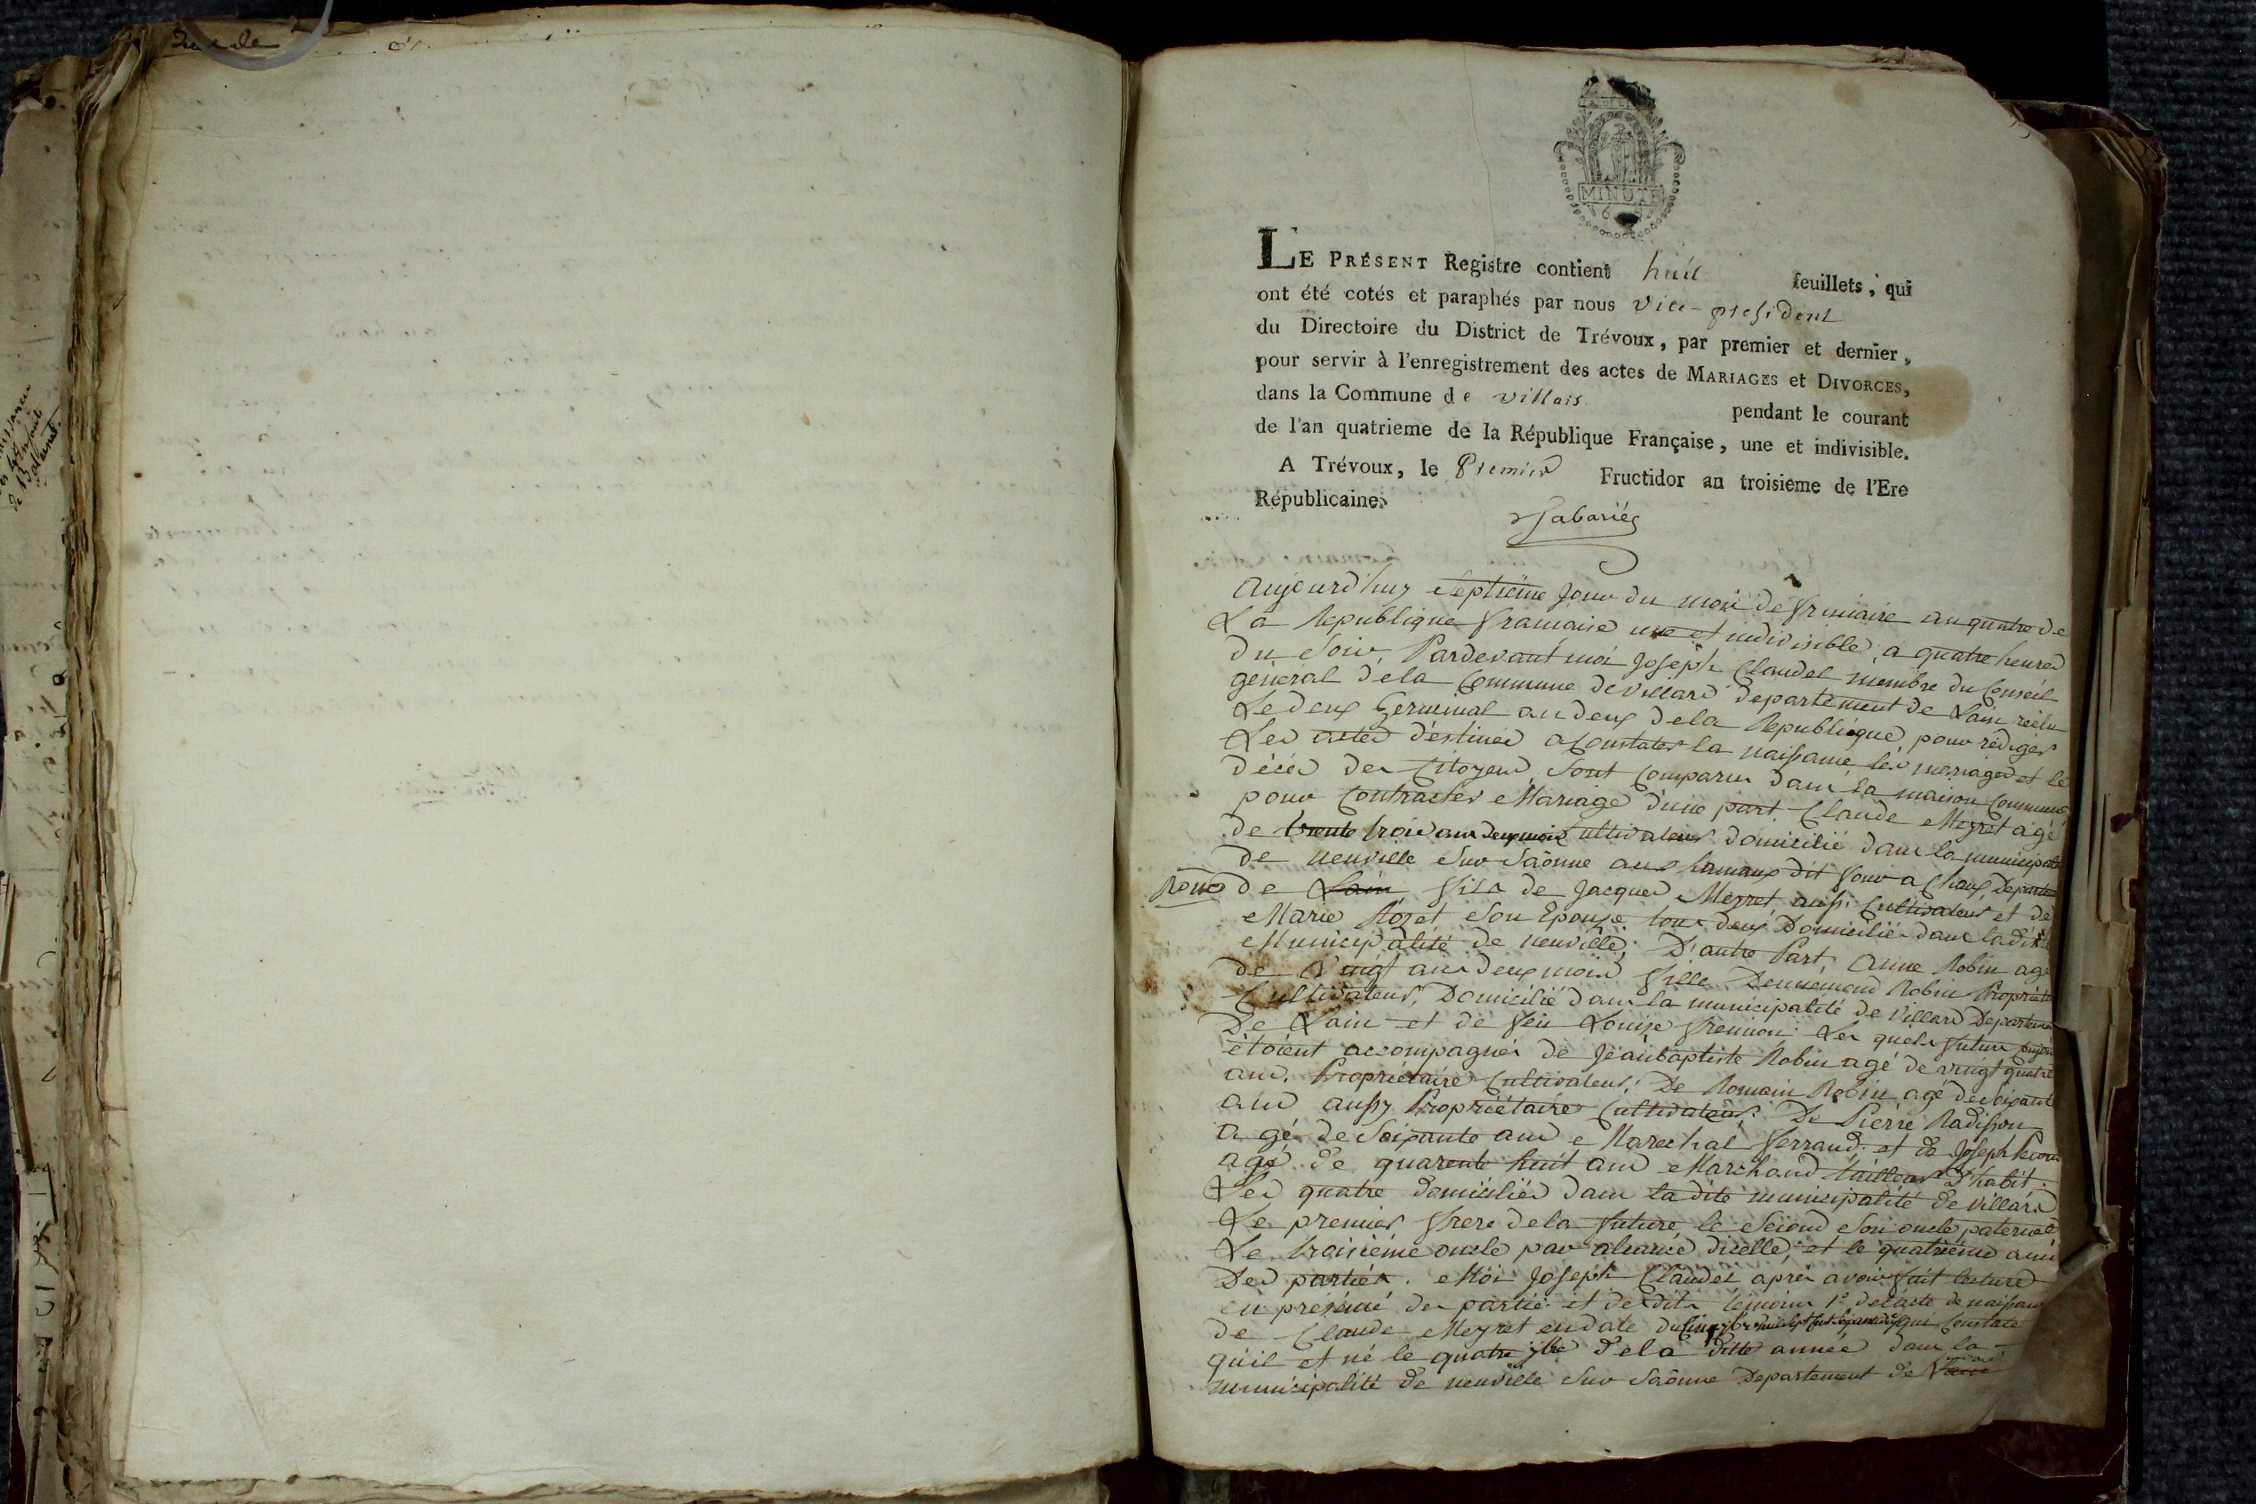 MINUTE
LE PRÉSENT Registre contient huit feuillets, qui
ont été cotés et paraphés par nous vice-president
du Directoire du District de Trévoux, par premier et dernier,
pour servir à l'enregistrement des actes de MARIAGES et DIVORCES,
dans la Commune de villars pendant le courant
de l'an quatrieme de la République Française, une et indivisible.
A Trévoux, le Premier Fructidor an troisieme de l'Ere
Républicaine.
aujourd'huy septieme jour du mois de frimaire an quatre de
La Republique francaise une et indivisible, a quatre heures
du soir Pardevant moi Joseph Claudet membre du Conseil
general de la Commune de villard departement de Lain reelu
Le deux Germinal an deux de la Republique pour rediger
Les actes destinés a Constater la naissance les mariages et le
décés des Citoyens, sont comparus dans la maison Commune
pour Contracter Mariage d'une part Claude Meyret agé
de trente trois ans deux mois Cultivateur domicilié dans la municipalité
de neuville sur Saônne au hamaux dit
de Lain fils de Jacques Meyret aussi Cultivateur et de
Marie son Epouse tous deux Domiciliés dans ladite
Municipalité de neuville; D'autre Part, anne Robin agé
de Vingt ans deux mois fille Robin
Cultivateur, Domicilié dans la municipalité de Villard
De Lain et de feu Louise Les quels futurs
étoient accompagnés de Jeanbaptiste Robin agé de vingt quatre
ans, Propriétaire Cultivateur, De Romain Robin agé de
ans aussy Propriétaire Cultivateur, De Pierre Radisson
agé de Soixante ans Marechal ferrand et de Joseph
agé de quarente huit ans Marchand tailleur d'habit
Les quatre domiciliés dans la dite municipalité de villard
Le premier frere de la future le second son oncle paternel
Le troisiéme oncle par aliance dicelle, et le quatriéme ami
Des parties. Moi Joseph Claudet aprés avoir fait lecture
en présence des parties et desdits temoins 1° de lacte de naissance
de Claude Meyret en date du que Constate
qu'il et né le quatre 7bre de la ditte année dans la
municipalité de neuville sur Saônne Departement de